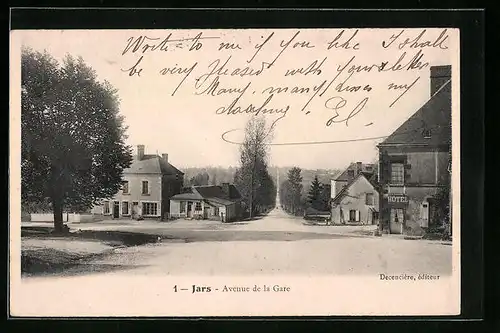 Write to me if you like, I shall
be very pleased with your letter
Many, many kisses my
El.
HOTEL
1 — JARS - Avenue de la Gare
Decencière, éditeur